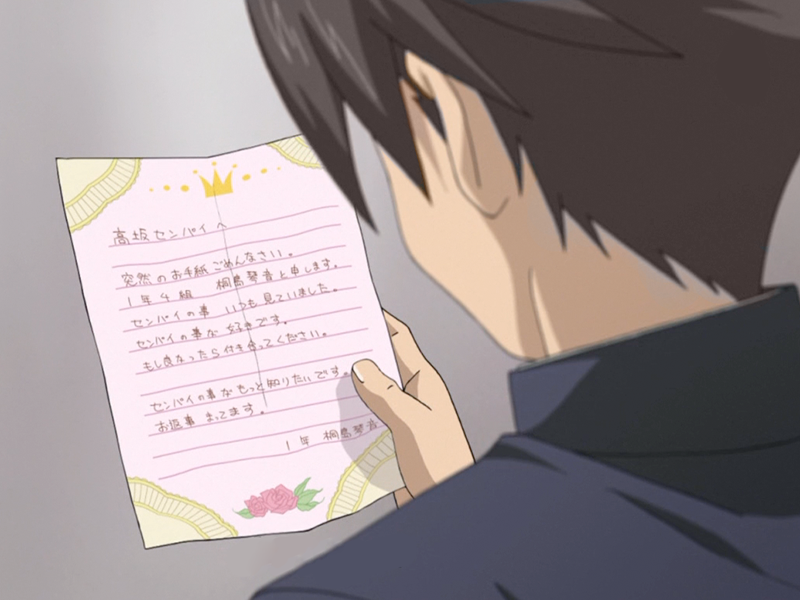 高坂センパイへ
突然のお手紙ごめんなさい。
1年4組 桐島琴音と申します。
センパイの事 いつも見ていました。
センパイの事が好きです。
もし良かったら付き合ってください。
センパイの事がもっと知りたいです。
お返事 まってます。
1年 桐島琴音